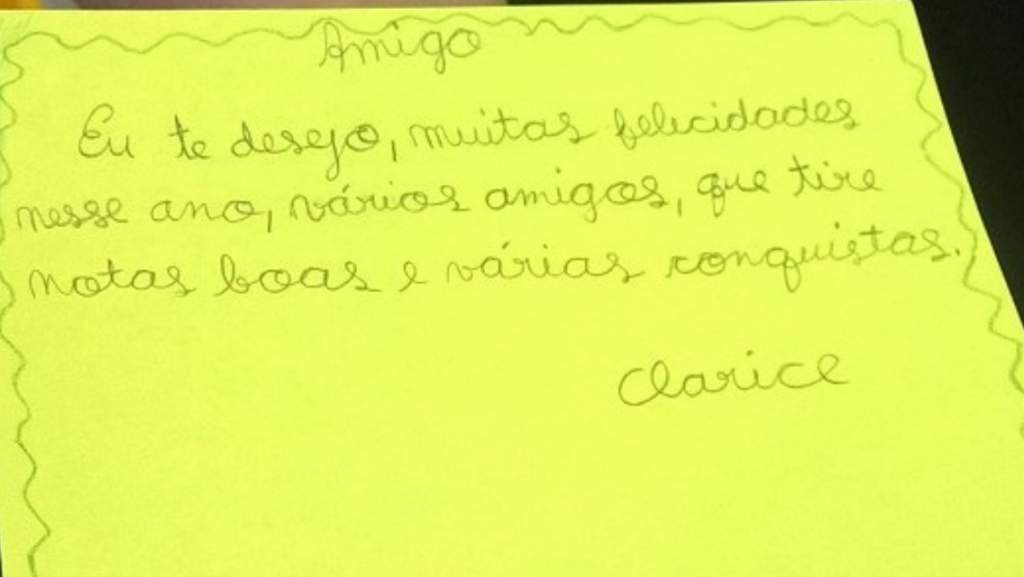 Amigo
Eu te desejo, muitas felicidades
nesse ano, vários amigos, que tire
notas boas e várias conquistas.
Clarice